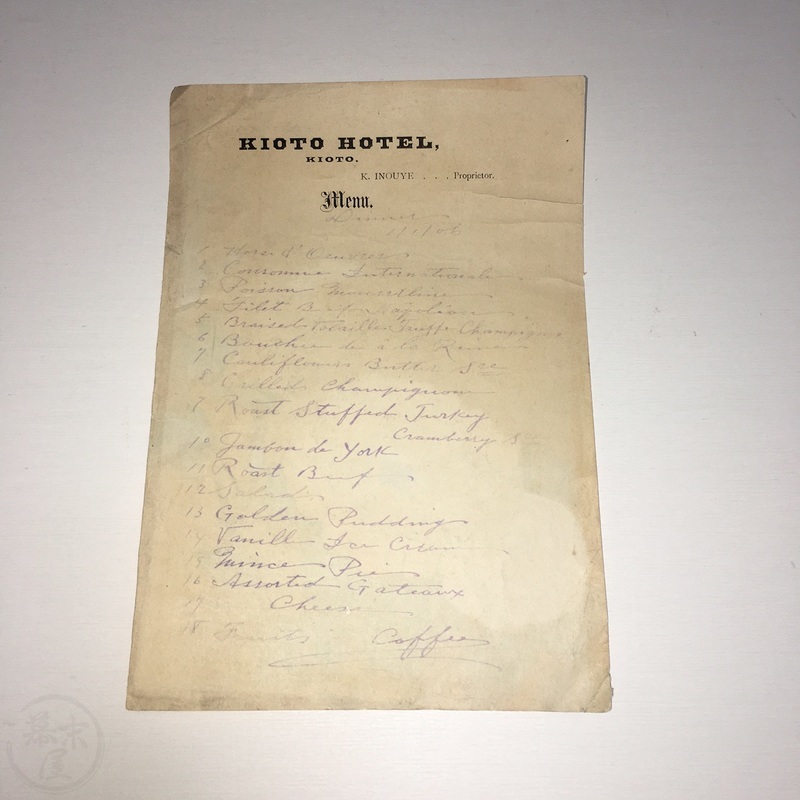 KIOTO HOTEL,
KIOTO.
K. INOUYE . . . Proprietor.
Menu.
Dinner
1/1/06
1 Hors d'Oeuvres
2 Consomme Internationale
3 Poisson Mousseline
4 Filet Beef Napoleon
5 Braised Truffe Champignon
6 Bouchee de à la Reine
7 Cauliflower Butter Sce
8 Grilled Champignon
9 Roast Stuffed Turkey
Cramberry Sce
10 Jambon de York
11 Roast Beef
12 Salad
13 Golden Pudding
14 Vanilla Ice Cream
15 Mince Pie
16 Assorted Gateaux
17 Cheese
18 Fruits Coffee
幕末屋